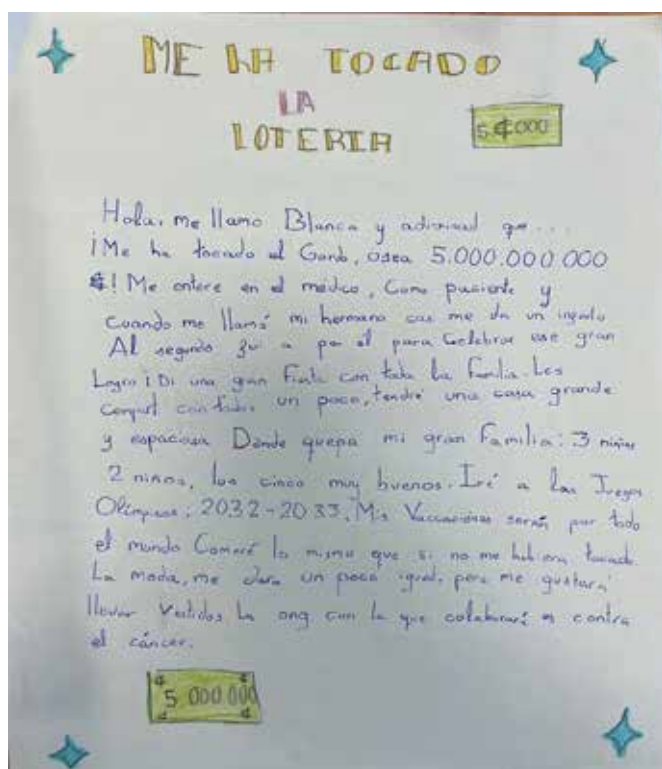 ME HA TOCADO
LA
LOTERIA
5.¢000
Hola, me llamo Blanca y adivinad que...
¡Me ha tocado el Gordo, osea 5.000.000.000
¢! Me entere en el médico, Como paciente y
Cuando me llamó mi hermano cas me da un ingarto
Al segundo fui a por el para Celebrar ese gran
Logro ¡Di una gran fiesta con toda la familia. Les
compart con todos un poco, tendré una casa grande
y espaciosa Donde quepa mi gran familia: 3 niñas
2 niños, los cinco muy buenos. Iré a los Juegos
Olimpicos: 2032-2033. Mis Vaccaciones serán por todo
el mundo Comeré lo mismo que si no me hubiera tocado.
La moda, me dara un poco igual, pero me gustará
llevar Vestidos. La ong con la que colaboraré es contra
el cáncer.
5 000.000